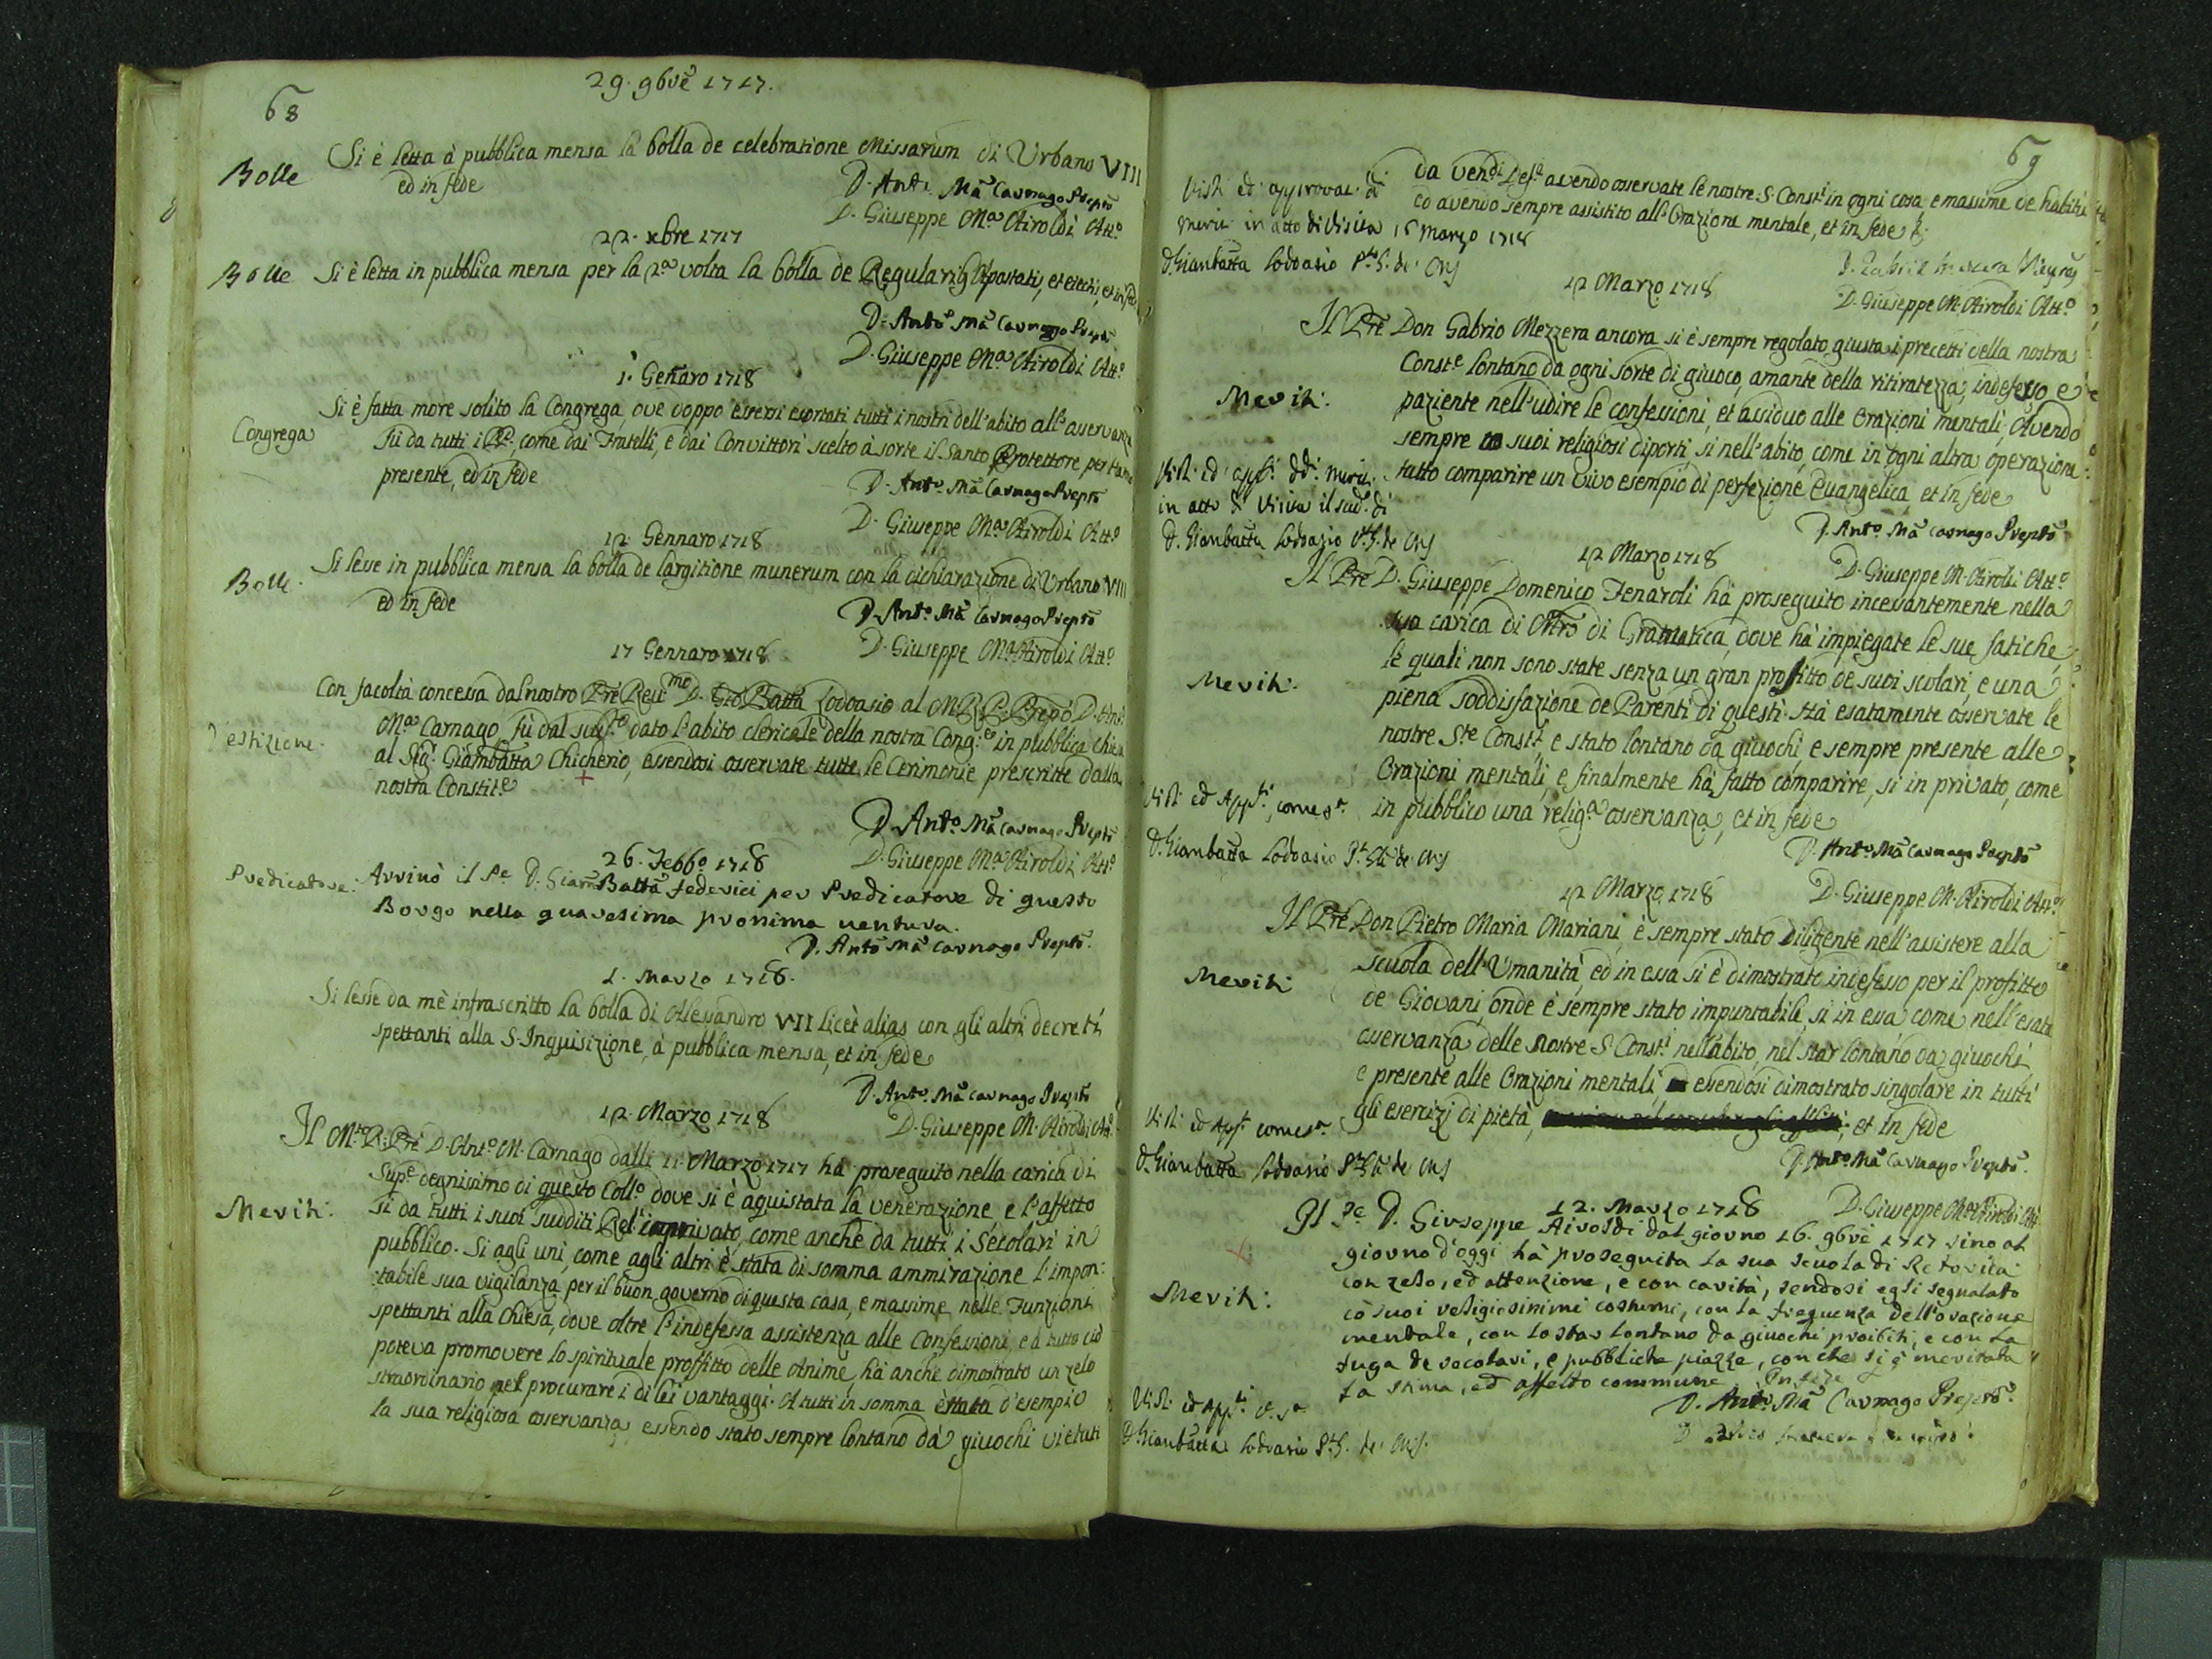 68
29. 9bre 1717.
Bolle
Si è letta à pubblica mensa la bolla de celebratione Missarum di Urbano VIII
ed in fede
D. Anto. Ma Carnago Prepto
D. Giuseppe Ma. Airoldi Atto.
22. xbre 1717
Bolle
Si è letta in pubblica mensa per la 2a volta la bolla de Regularib Apostatis, et eiectis, et in fede
D. Anto Ma Carnago Prepto
D. Giuseppe Ma. Airoldi Atto.
1. Genaro 1718
Congrega
Si è fatta more solito la Congrega, ove doppo essersi esortati tutti i nostri dell'abito all'osservanza
fù da tutti i PP. come dai Fratelli, e dai Convittori scelto à sorte il Santo Protettore, per l'anno
presente, ed in fede
D. Anto. Ma Carnago Prepto
D. Giuseppe Ma. Airoldi Atto.
12. Gennaro 1718
Bolle.
Si lesse in pubblica mensa la bolla de largitione munerum con la dichiarazione di Urbano VIII
ed in fede
D. Anto. Ma Carnago Prepto
D. Giuseppe Ma. Airoldi Atto.
17 Gennaro 1718
Vestizione.
Con facoltà concessa dal nostro Pre Reumo D. Gio Batta Lodoasio al M. R. P. Prepo D. Anto.
Ma. Carnago, fù dal sudto dato l'abito clericale della nostra Cong.e in pubblica chiesa
al Sig. Giambatta Chicherio, essendosi osservate tutte le Cerimonie prescritte dalla
nostra Constit.e
D. Anto. Ma Carnago Prepto
D. Giuseppe Ma. Airoldi Atto.
26. Febbo. 1718
Predicatore.
Arrivò il Pe D. Giam Batta Federici per Predicatore di questo
Borgo nella quaresima prossima ventura.
D. Anto Ma Carnago Prepto.
1. Marzo 1718.
Si lesse da mè infrascritto la bolla di Alessandro VII licèt alias con gli altri decreti
spettanti alla S. Inquisizione, à pubblica mensa, et in fede
D. Anto. Ma Carnago Prepto
12. Marzo 1718
D. Giuseppe M. Airoldi Atto.
Meriti.
Il M. R. Pre D. Anto. M. Carnago dalli 11 Marzo 1717 hà proseguito nella carica di
Supe degnissimo di questo Collo dove si è aquistata la venerazione e l'affetto
si da tutti i suoi sudditi Rel. in privato, come anche da tutti i Secolari in
pubblico. Si agli uni, come agli altri è stata di somma ammirazione l'impon:
tabile sua vigilanza per il buon governo di questa casa, e massime nelle Funzioni
spettanti alla Chiesa, dove oltre l'indefessa assistenza alle Confessioni, e à tutto ciò
poteva promovere lo spirituale proffitto delle Anime, hà anche dimostrato un zelo
straordinario nel procurare i di lei vantaggi. A tutti in somma è stata d'esempio
la sua religiosa osservanza, essendo stato sempre lontano dà giuochi vietati
69
da Vendi Leg.a avendo osservate le nostre S. Consti in ogni cosa e massime de habitu
ed avendo sempre assistito all'Orazione mentale, et in fede
Visti ed approvati di
meriti in atto di Visita 15 marzo 1718
D. Gianbatta Lodoasio
12 Marzo 1718
D. Giuseppe M. Airoldi Atto
Meriti.
Il Pre Don Gabrio Mezzera ancora si è sempre regolato giusta i precetti della nostra
Const.e lontano da ogni sorte di giuoco, amante della ritiratezza, indefesso e
paziente nell'udire le confessioni, et assiduo alle Orazioni mentali, Avendo
sempre suoi religiosi diporti si nell'abito, come in ogni altra operazione
fatto comparire un vivo esempio di perfezione Evangelica, et in fede
Visti ed appti. ddi. meriti
in atto di Visita il sudo. di
D. Gianbatta Lodoasio
D. Anto Ma Carnago Prepto
12 Marzo 1718
D. Giuseppe M. Airoldi Atto
Meriti.
Il Pre D. Giuseppe Domenico Fenaroli hà proseguito incessantemente nella
sua carica di Mro di Gramatica, dove hà impiegate le sue fatiche,
le quali non sono state senza un gran proffitto de suoi scolari, e una
piena soddisfazione de Parenti di questi. Hà esatamente osservate le
nostre Ste Consti, e stato lontano da giuochi, e sempre presente alle
Orazioni mentali, e finalmente hà fatto comparire, si in privato, come
in pubblico una relig.a osservanza, et in fede
Visti ed Appti. come sa.
D. Gianbatta Lodoasio
D. Anto Ma Carnago Prepto
12 Marzo 1718
D. Giuseppe M. Airoldi Atto.
Meriti
Il Pre Don Pietro Maria Mariani, è sempre stato diligente nell'assistere alla
scuola dell'Umanità, ed in essa si è dimostrato indefesso per il proffitto
de Giovani, onde è sempre stato impuntabile, si in essa come nell'esata
osservanza delle nostre S. Consti. nell'abito, nel star lontano da giuochi,
e presente alle Orazioni mentali, essendosi dimostrato singolare in tutti
gli esercizi di pietà, et in fede
Visti ed Appti come sa.
D. Gianbatta Lodoasio
D. Anto Ma Carnago Prepto.
12. Marzo 1718
D. Giuseppe Ma Airoldi Atto.
Meriti.
Il Pe D. Giuseppe Airoldi dal giorno 16. 9bre 1717 sino al
giorno d'oggi hà proseguita la sua scuola di Retorica
con zelo, ed attenzione, e con carità, sendosi egli segnalato
cò suoi religiosissimi costumi, con la frequenza dell'orazione
mentale, con lo star lontano da giuochi proibiti, e con la
fuga de secolari, e pubbliche piazze, con che si è meritata
la stima, ed affetto commune. In fede
Visti ed Appti.
D. Gianbatta Lodoasio
D. Anto. Ma Carnago Prepto.